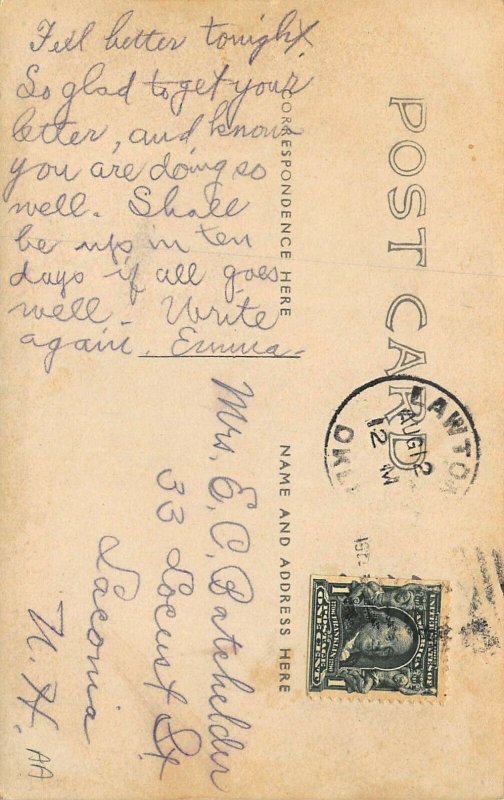 Fell better tonight.
So glad to get your
letter, and know
you are doing so
well. Shall
be up in ten
days if all goes
well. Write
again. Emma.
POST CARD
CORRESPONDENCE HERE
NAME AND ADDRESS HERE
LAWTON
AUG 12
12 M
OKLA
UNITED STATES OF
AMERICA
POSTAGE
1 ONE CENT 1
Mrs. E. C. Batchelder
33 Locust St
Laconia
N. H.
AA